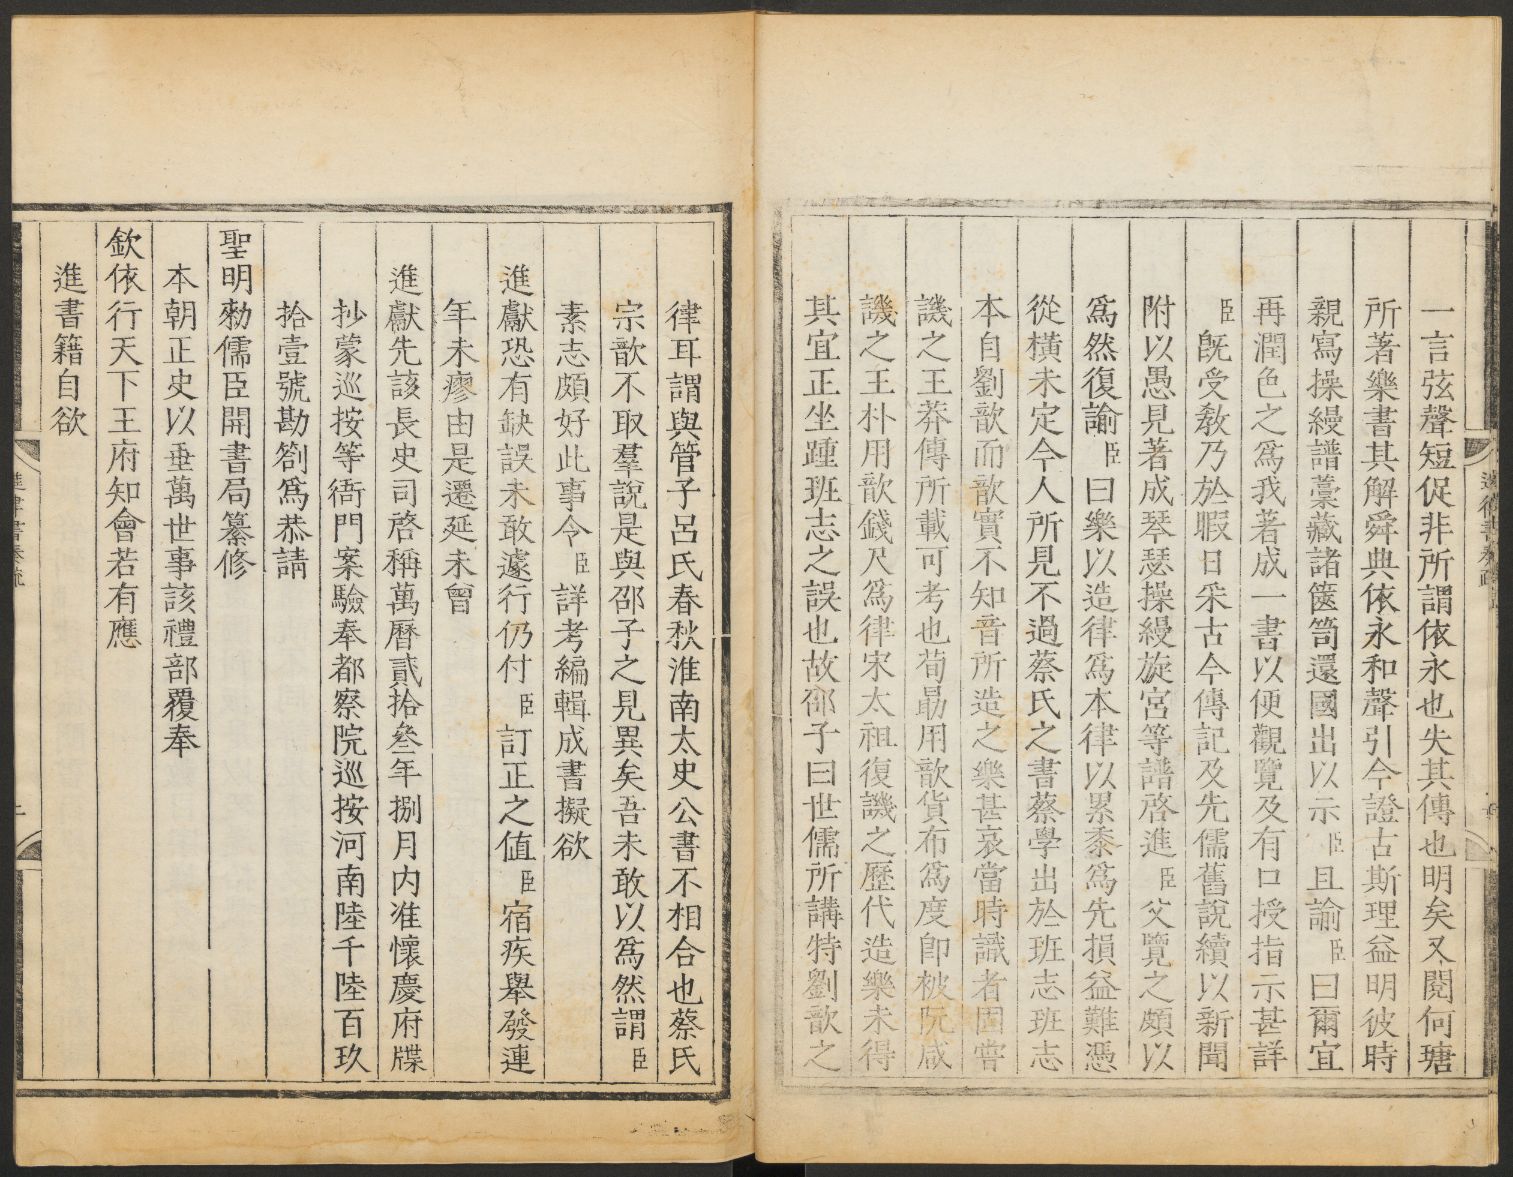 一言弦聲短促非所謂依永也失其傳也明矣又閱何瑭
所著樂書其解舜典依永和聲引今證古斯理益明彼時
親寫操縵譜藁藏諸篋笥還國出以示臣且諭臣曰爾宜
再潤色之爲我著成一書以便觀覽及有口授指示甚詳
臣旣受敎乃於暇日采古今傳記及先儒舊說續以新聞
附以愚見著成琴瑟操縵旋宮等譜啓進臣父覽之頗以
爲然復諭臣曰樂以造律爲本律以累黍爲先損益難憑
從橫未定今人所見不過蔡氏之書蔡學出於班志班志
本自劉歆而歆實不知音所造之樂甚哀當時識者固嘗
譏之王莽傳所載可考也荀勗用歆貨布爲度卽被阮咸
譏之王朴用歆錢尺爲律宋太祖復譏之歷代造樂未得
其宜正坐踵班志之誤也故邵子曰世儒所講特劉歆之
律耳謂與管子呂氏春秋淮南太史公書不相合也蔡氏
宗歆不取羣說是與邵子之見異矣吾未敢以爲然謂臣
素志頗好此事令臣詳考編輯成書擬欲
進獻恐有缺誤未敢遽行仍付臣訂正之値臣宿疾舉發連
年未瘳由是遷延未曾
進獻先該長史司啓稱萬曆貳拾叄年捌月內准懷慶府牒
抄蒙巡按等衙門案驗奉都察院巡按河南陸千陸百玖
拾壹號勘劄爲恭請
聖明勑儒臣開書局纂修
本朝正史以垂萬世事該禮部覆奉
欽依行天下王府知會若有應
進書籍自欲
進律書奏疏